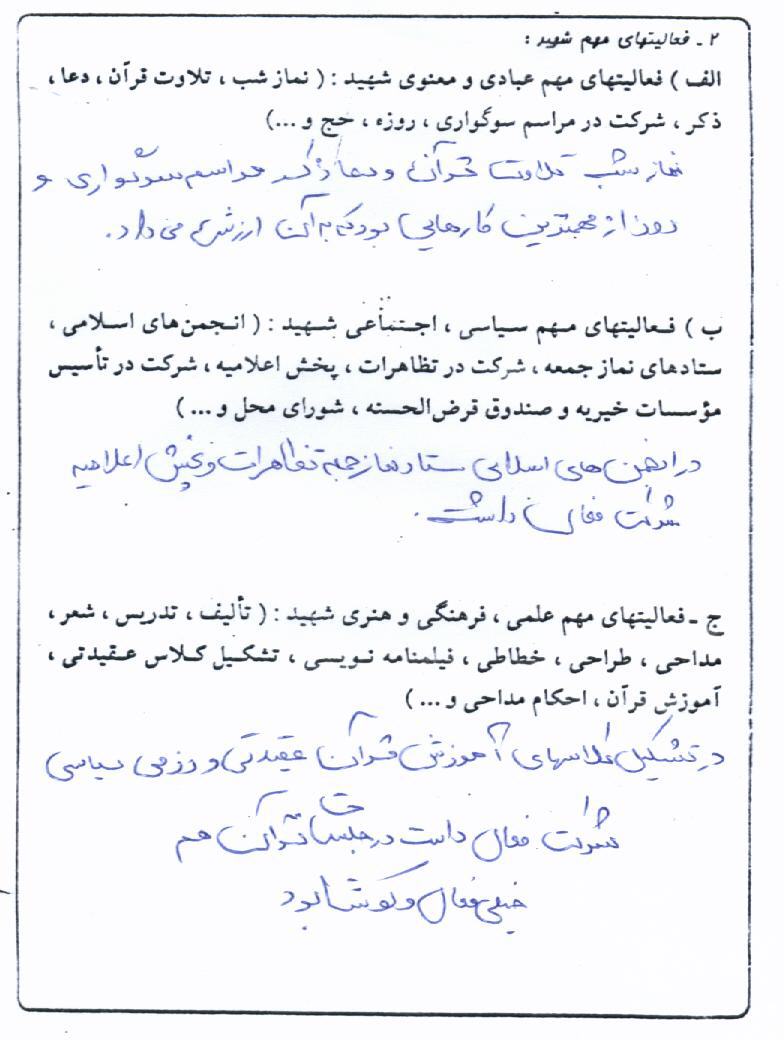 ۲ ـ فعالیتهای مهم شهید :
الف ) فعالیتهای مهم عبادی و معنوی شهید : ( نماز شب ، تلاوت قرآن ، دعا ،
ذکر ، شرکت در مراسم سوگواری ، روزه ، حج و ...)
نماز شب تلاوت قرآن و دعا ذکر مراسم سوگواری و
از مهمترین کارهایی بود که به آن ارزش می داد.
ب ) فعالیتهای مهم سیاسی ، اجتماعی شهید : ( انجمن‌های اسلامی ،
ستادهای نماز جمعه ، شرکت در تظاهرات ، پخش اعلامیه ، شرکت در تأسیس
مؤسسات خیریه و صندوق قرض‌الحسنه ، شورای محل و ... )
در انجمن های اسلامی ستاد نماز جمعه تظاهرات و پخش اعلامیه
شرکت فعال داشت .
ج ـ فعالیتهای مهم علمی ، فرهنگی و هنری شهید : ( تألیف ، تدریس ، شعر ،
مداحی ، طراحی ، خطاطی ، فیلمنامه نویسی ، تشکیل کلاس عقیدتی ،
آموزش قرآن ، احکام مداحی و ... )
در تشکیل کلاسهای آموزش قرآن عقیدتی و رزمی سیاسی
شرکت فعال داشت در جلسات قرآن هم
خیلی فعال و کوشا بود